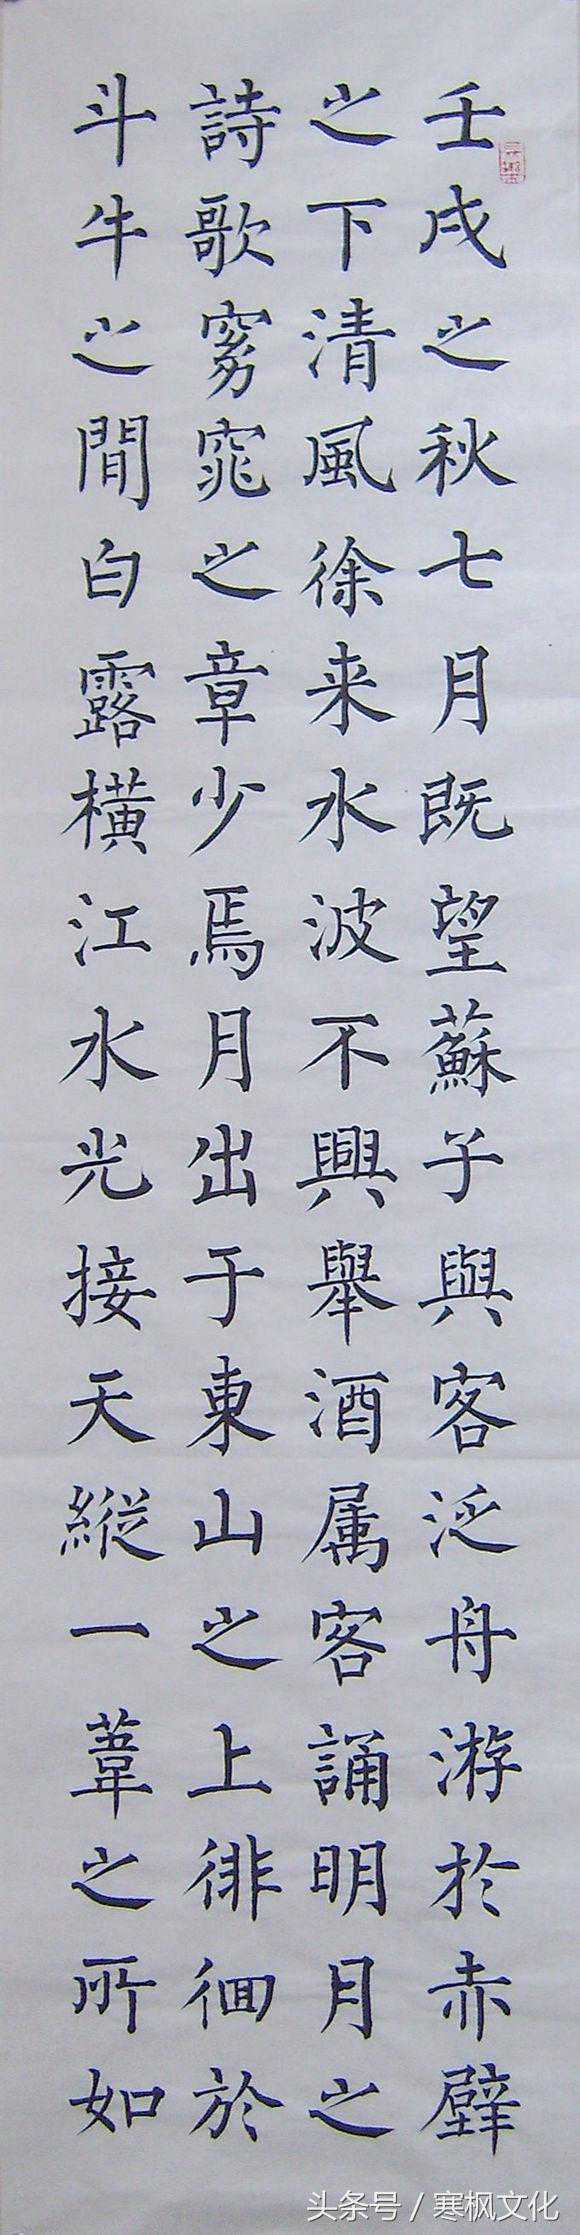 壬戌之秋七月既望蘇子與客泛舟游於赤壁
之下清風徐来水波不興舉酒属客誦明月之
詩歌窈窕之章少焉月出于東山之上徘徊於
斗牛之間白露橫江水光接天縱一葦之所如
头条号 / 寒枫文化